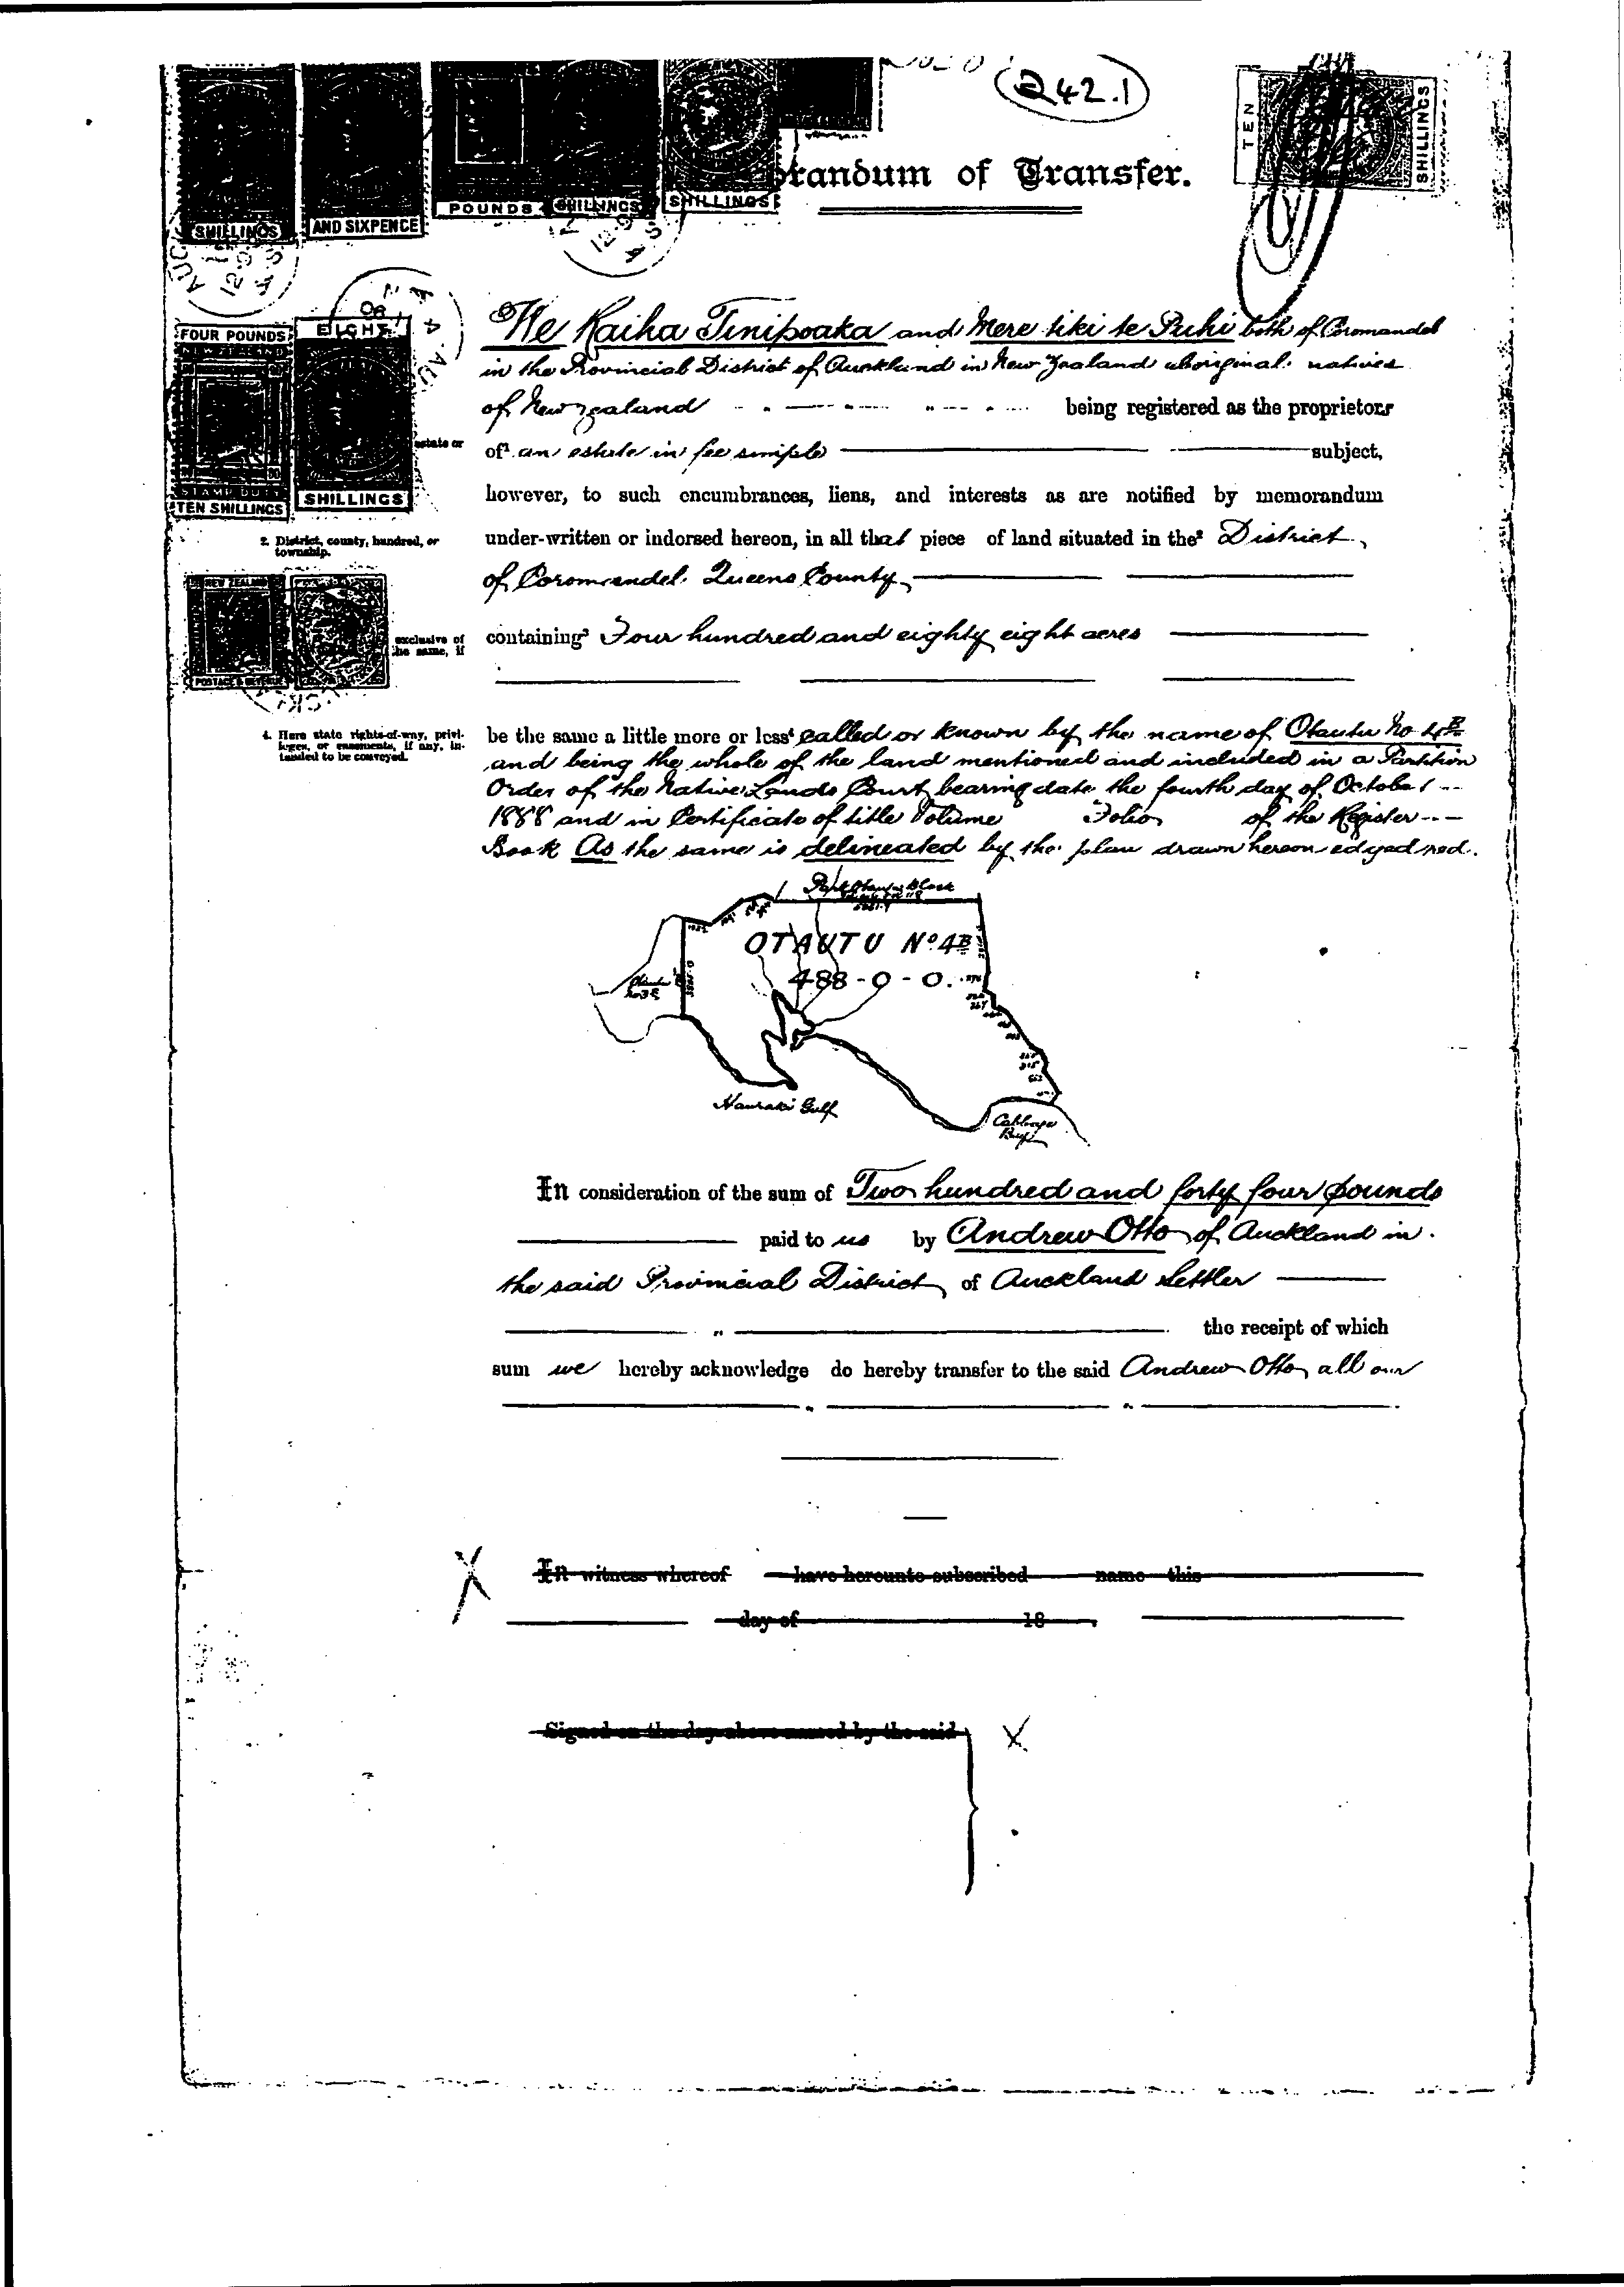 242.1
randum of Transfer.
TEN SHILLINGS
SHILLINGS
AND SIXPENCE
POUNDS
SHILLINGS
SHILLINGS
FOUR POUNDS
EIGHT
TEN SHILLINGS
SHILLINGS
We Raiha Tinipoaka and Mere tiki te Puhi both of Coromandel
in the Provincial District of Auckland in New Zealand aboriginal natives
of New Zealand being registered as the proprietors
estate or
of¹ an estate in fee simple subject,
however, to such encumbrances, liens, and interests as are notified by memorandum
2. District, county, hundred, or
township.
under-written or indorsed hereon, in all that piece of land situated in the² District
of Coromandel. Queens County
NEW ZEALAND
POSTAGE & REVENUE
exclusive of
the same, if
containing³ Four hundred and eighty eight acres
4. Here state rights-of-way, privi-
leges, or easements, if any, in-
tended to be conveyed.
be the same a little more or less⁴ called or known by the name of Otautu No 4B
and being the whole of the land mentioned and included in a Partition
Order of the Native Lands Court bearing date the fourth day of October
1888 and in Certificate of title Volume Folio of the Register
Book As the same is delineated by the plan drawn hereon edged red.
Part Otautu Block
OTAUTU No. 4B
488-0-0.
Hauraki Gulf
Cabbage
Bay
In consideration of the sum of Two hundred and forty four pounds
paid to us by Andrew Otto of Auckland in
the said Provincial District of Auckland Settler
the receipt of which
sum we hereby acknowledge do hereby transfer to the said Andrew Otto all our
X In witness whereof have hereunto subscribed name this
day of 18 .
Signed on the day above named by the said X